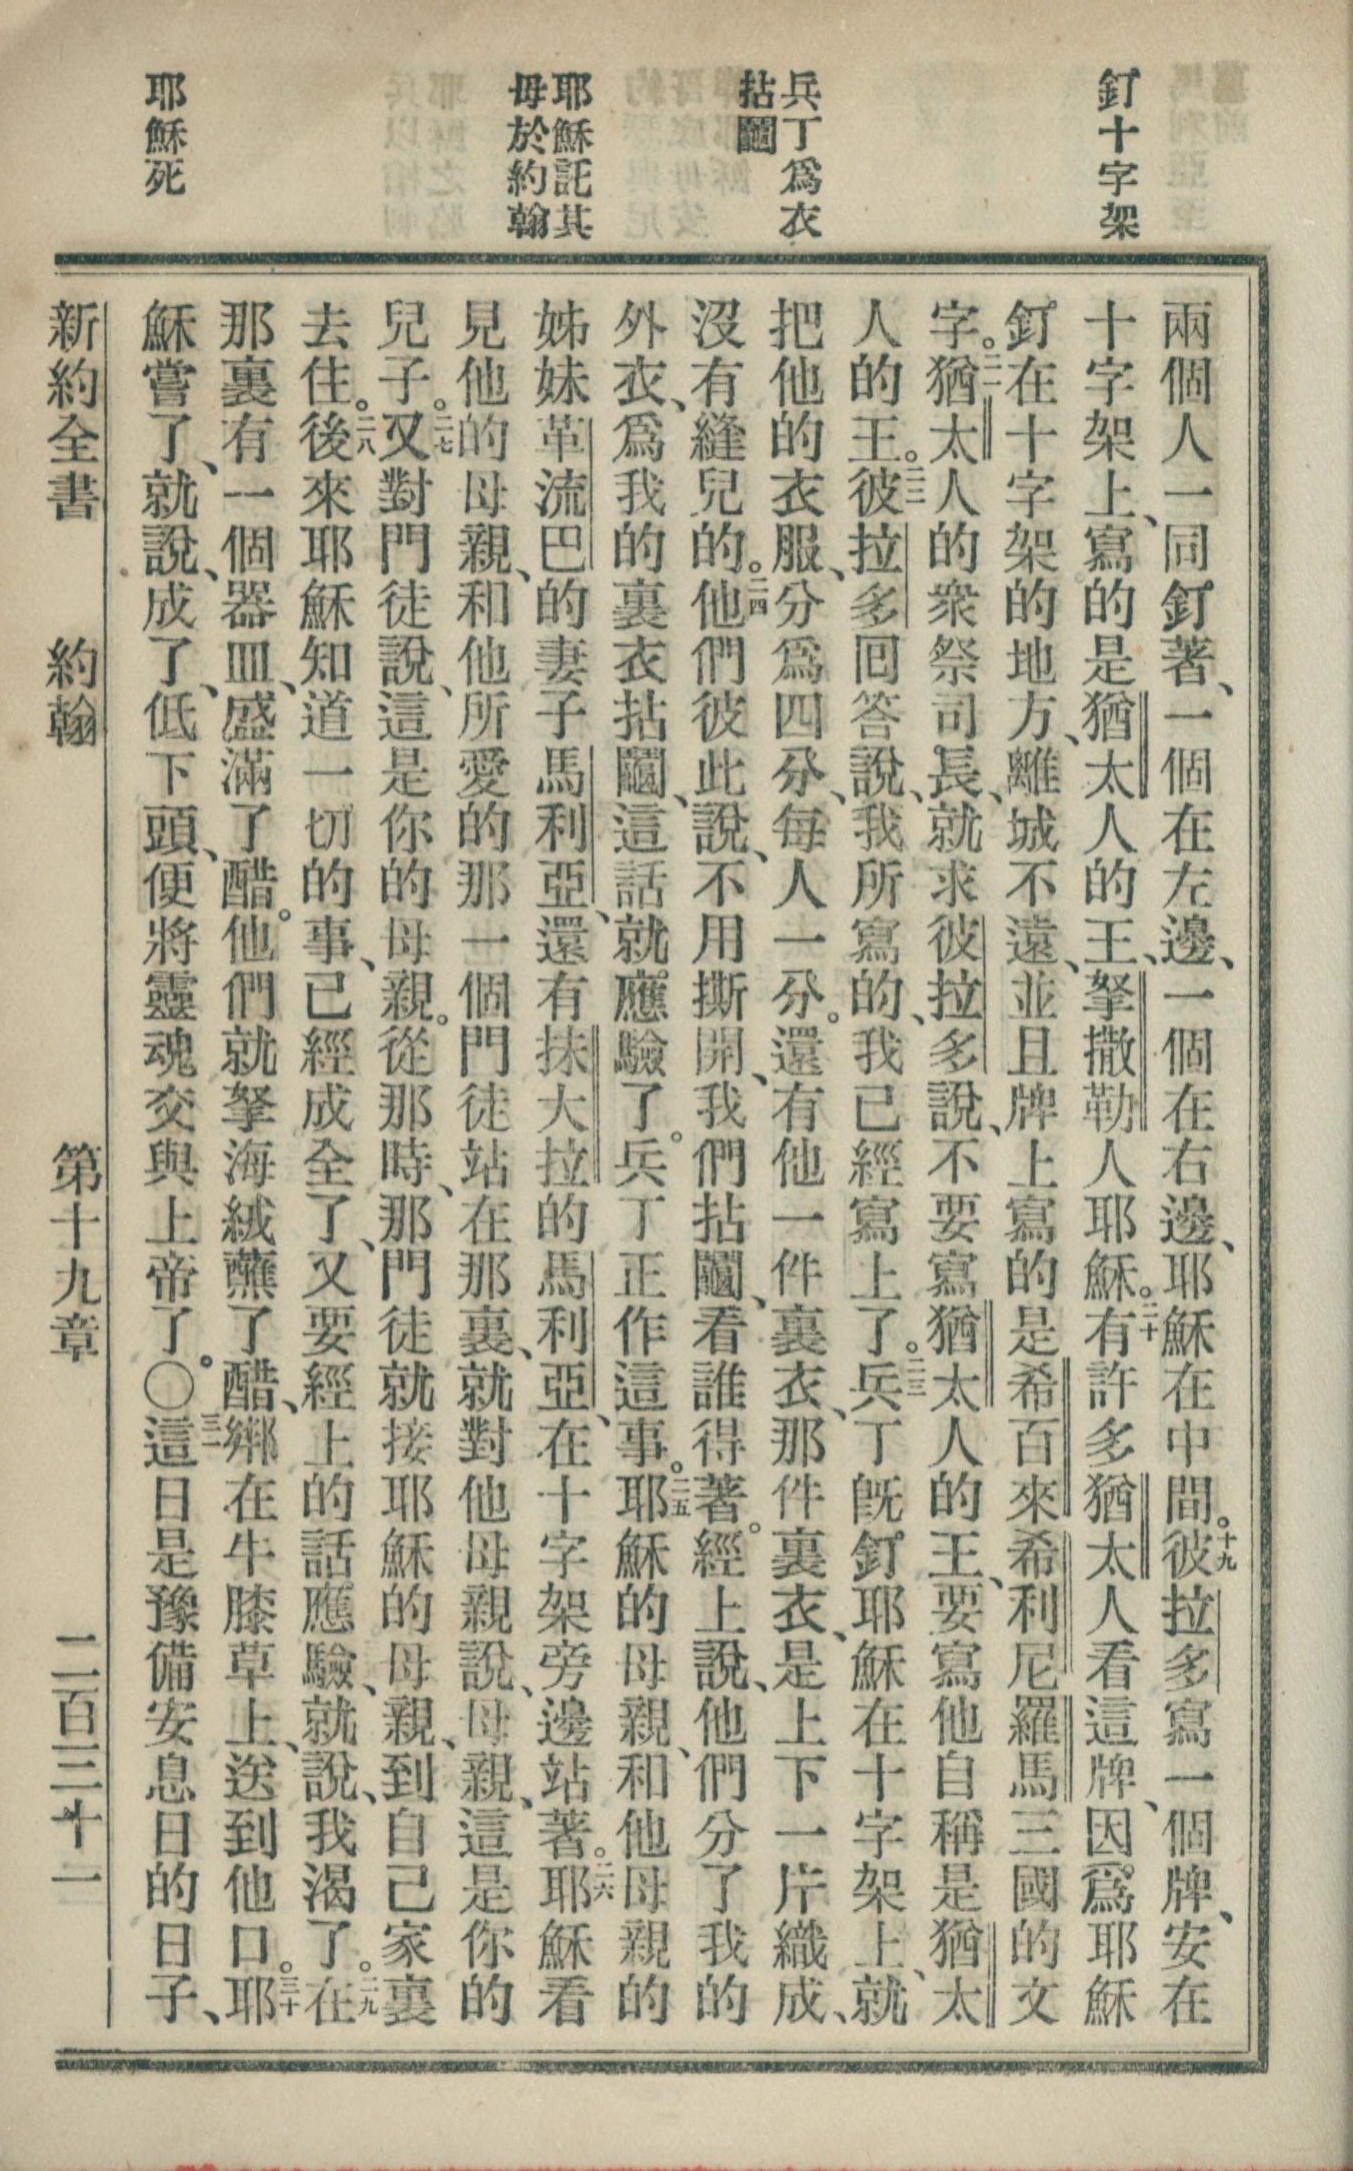 釘十字架
兵丁爲衣
拈鬮
耶穌託其
母於約翰
耶穌死
兩個人一同釘著、一個在左邊、一個在右邊、耶穌在中間。十九彼拉多寫一個牌、安在
十字架上、寫的是猶太人的王、拏撒勒人耶穌。二十有許多猶太人看這牌、因爲耶穌
釘在十字架的地方、離城不遠、並且牌上寫的是希百來希利尼羅馬三國的文
字。二一猶太人的衆祭司長、就求彼拉多說、不要寫猶太人的王、要寫他自稱是猶太
人的王。二二彼拉多回答說、我所寫的、我已經寫上了。二三兵丁旣釘耶穌在十字架上、就
把他的衣服、分爲四分、每人一分。還有他一件裏衣、那件裏衣、是上下一片織成、
沒有縫兒的。二四他們彼此說、不用撕開、我們拈鬮、看誰得著。經上說、他們分了我的
外衣、爲我的裏衣拈鬮、這話就應驗了。兵丁正作這事。二五耶穌的母親、和他母親的
姊妹革流巴的妻子馬利亞、還有抹大拉的馬利亞、在十字架旁邊站著。二六耶穌看
見他的母親、和他所愛的那一個門徒站在那裏、就對他母親說、母親、這是你的
兒子。二七又對門徒說、這是你的母親。從那時、那門徒就接耶穌的母親、到自己家裏
去住。二八後來耶穌知道一切的事、已經成全了、又要經上的話應驗、就說、我渴了。二九在
那裏有一個器皿、盛滿了醋。他們就拏海絨蘸了醋、綁在牛膝草上、送到他口。三十耶
穌嘗了、就說、成了、低下頭、便將靈魂交與上帝了。〇三一這日是豫備安息日的日子、
新約全書 約翰 第十九章 二百三十一